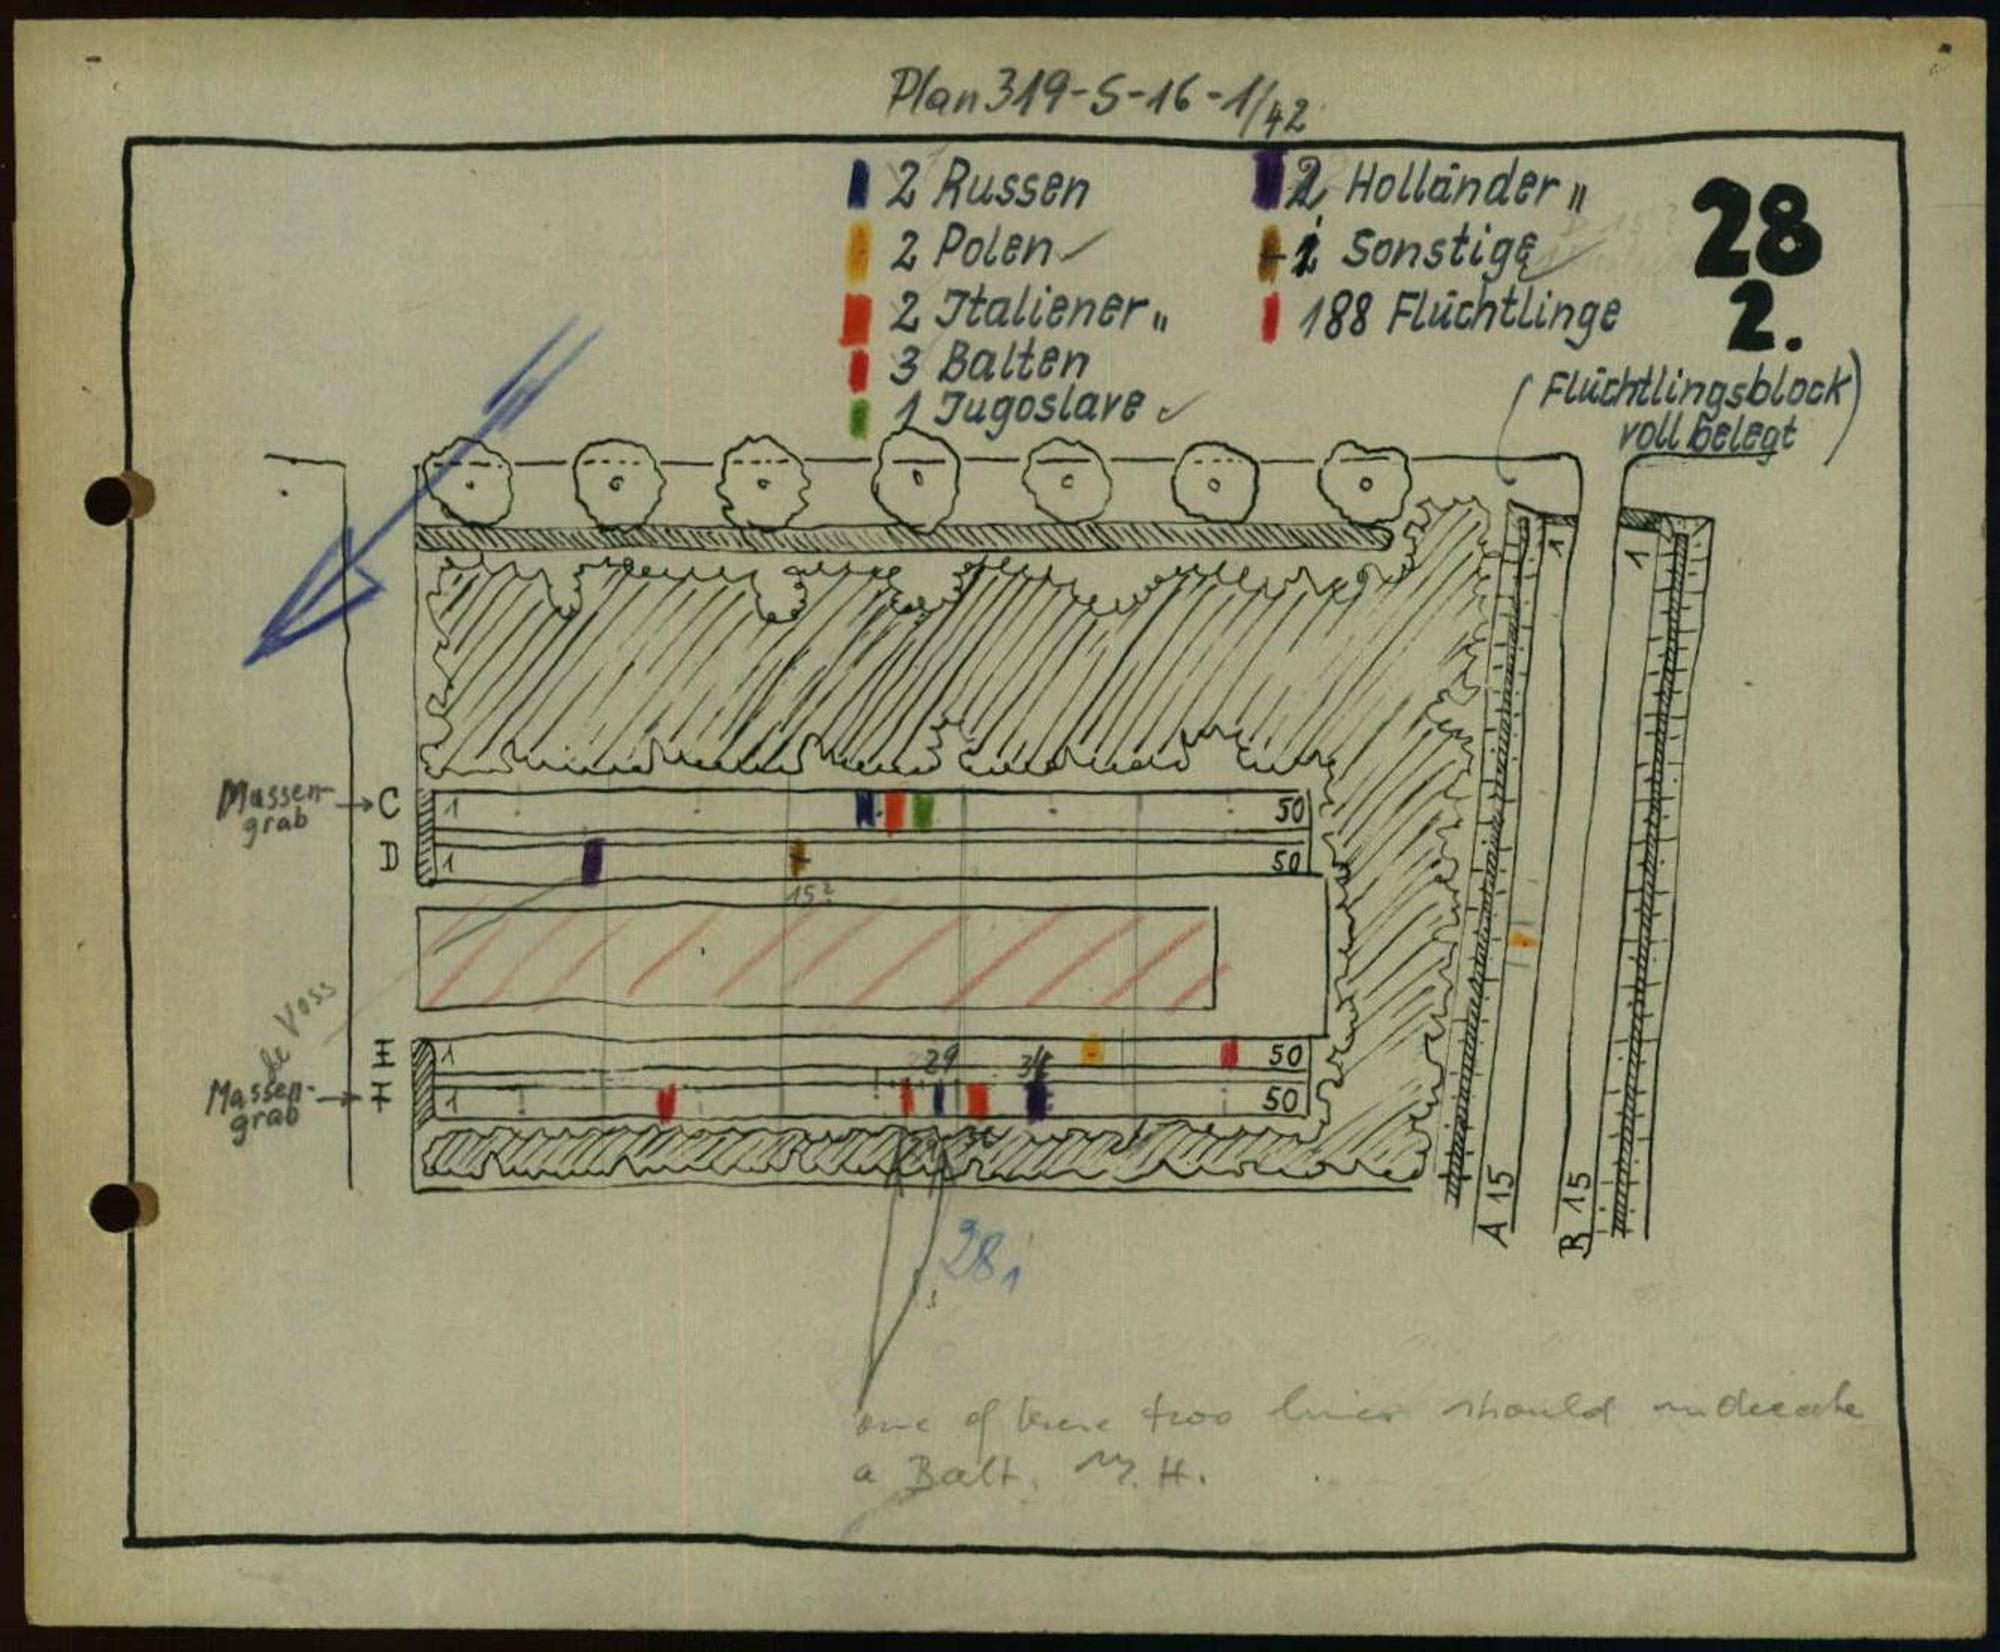 Plan 319-S-16-1/42
2 Russen
2 Polen ✓
2 Italiener "
3 Balten
1 Jugoslave ✓
2 Holländer "
1 Sonstige ✓
188 Flüchtlinge
28
2.
(Flüchtlingsblock)
voll belegt
1
1
Massen-
grab
→ C
1
50
D
1
50
15?
de Voss
1
50
29
Massen-
grab
1
50
A 15
B 15
28,
one of these two lines should indicate
a Balt. M. H.